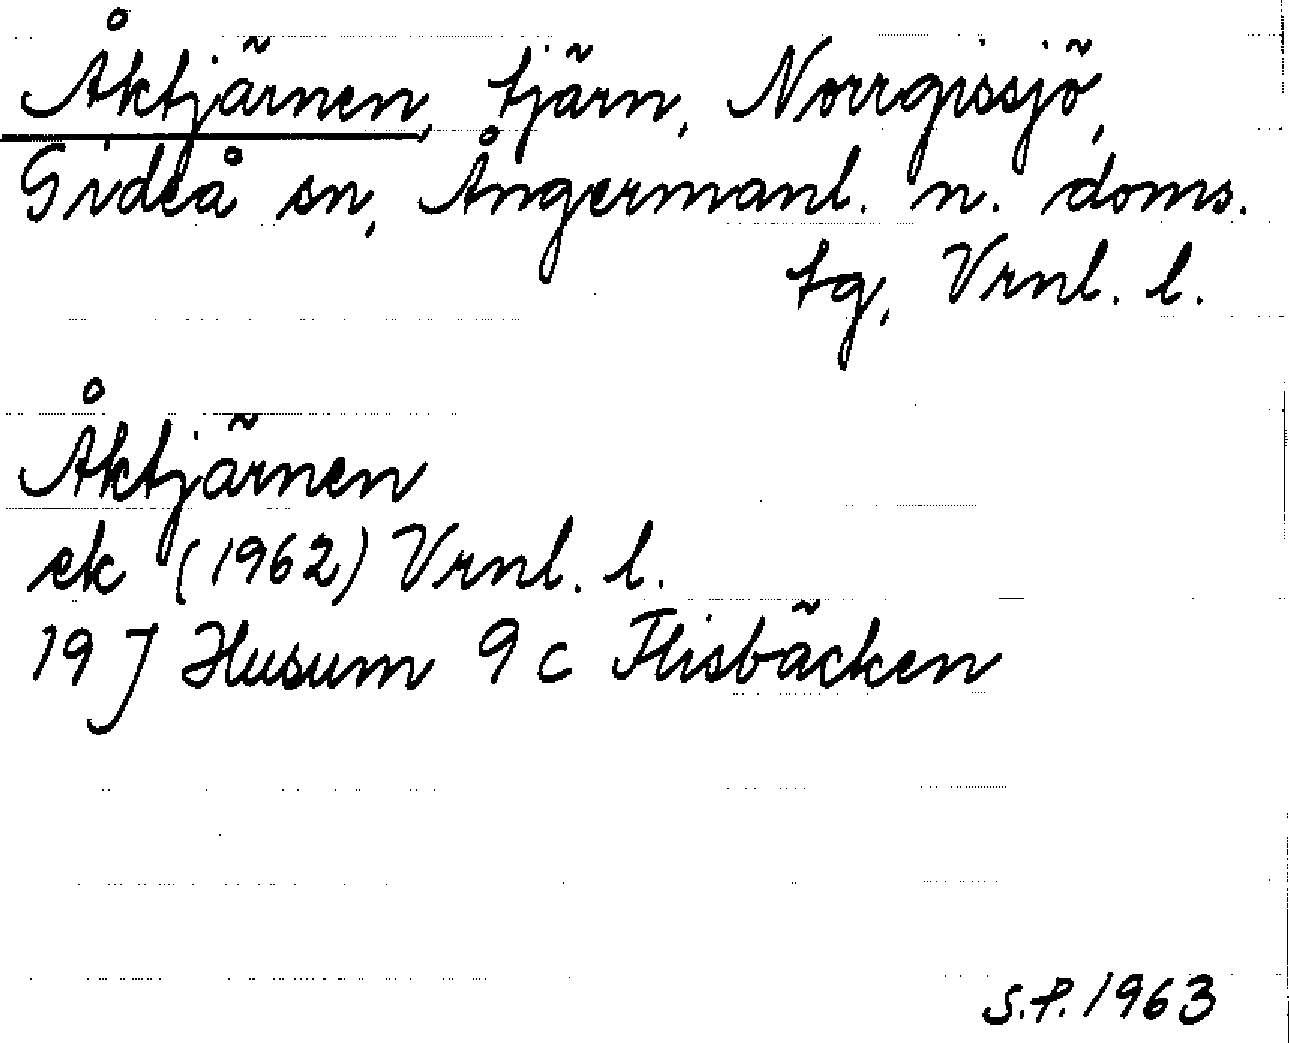 Åktjärnen, tjärn, Norrgissjö,
Gideå sn, Ångermanl. n. doms.
tg, Vrnl. l.
Åktjärnen
ek (1962) Vrnl. l.
19 J Husum 9 c Flisbäcken
S.P. 1963